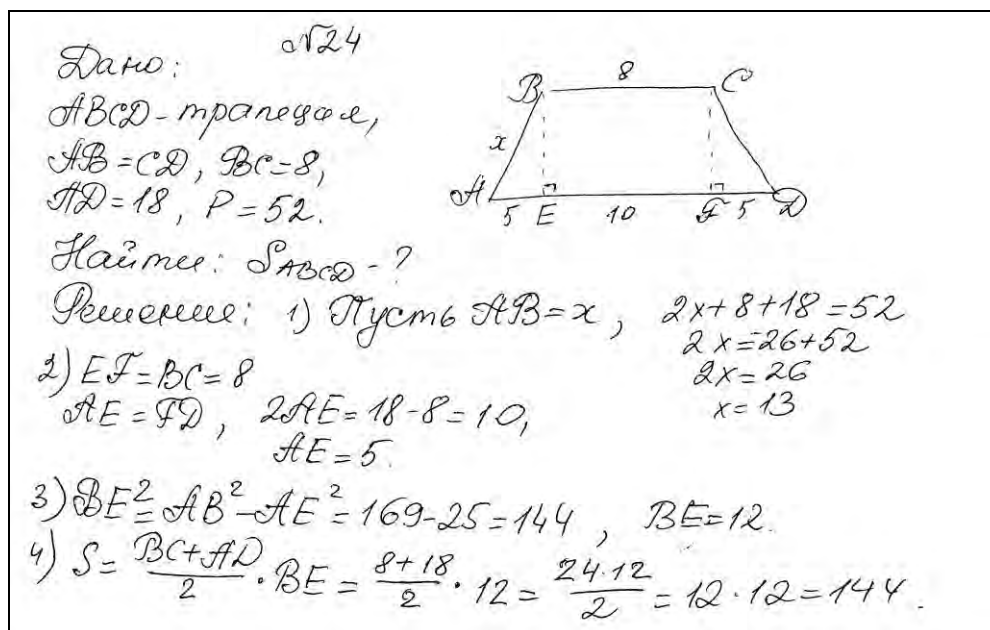 №24
Дано:
ABCD - трапеция,
AB = CD, BC = 8,
AD = 18, P = 52.
Найти: S_ABCD - ?
B 8 C
x
A 5 E 10 F 5 D
Решение: 1) Пусть AB = x, 2x+8+18 = 52
2x = -26+52
2x = 26
x = 13
2) EF = BC = 8
AE = FD, 2AE = 18-8 = 10,
AE = 5.
3) BE² = AB² - AE² = 169-25 = 144, BE = 12.
4) S = (BC+AD)/2 · BE = (8+18)/2 · 12 = (24·12)/2 = 12·12 = 144.